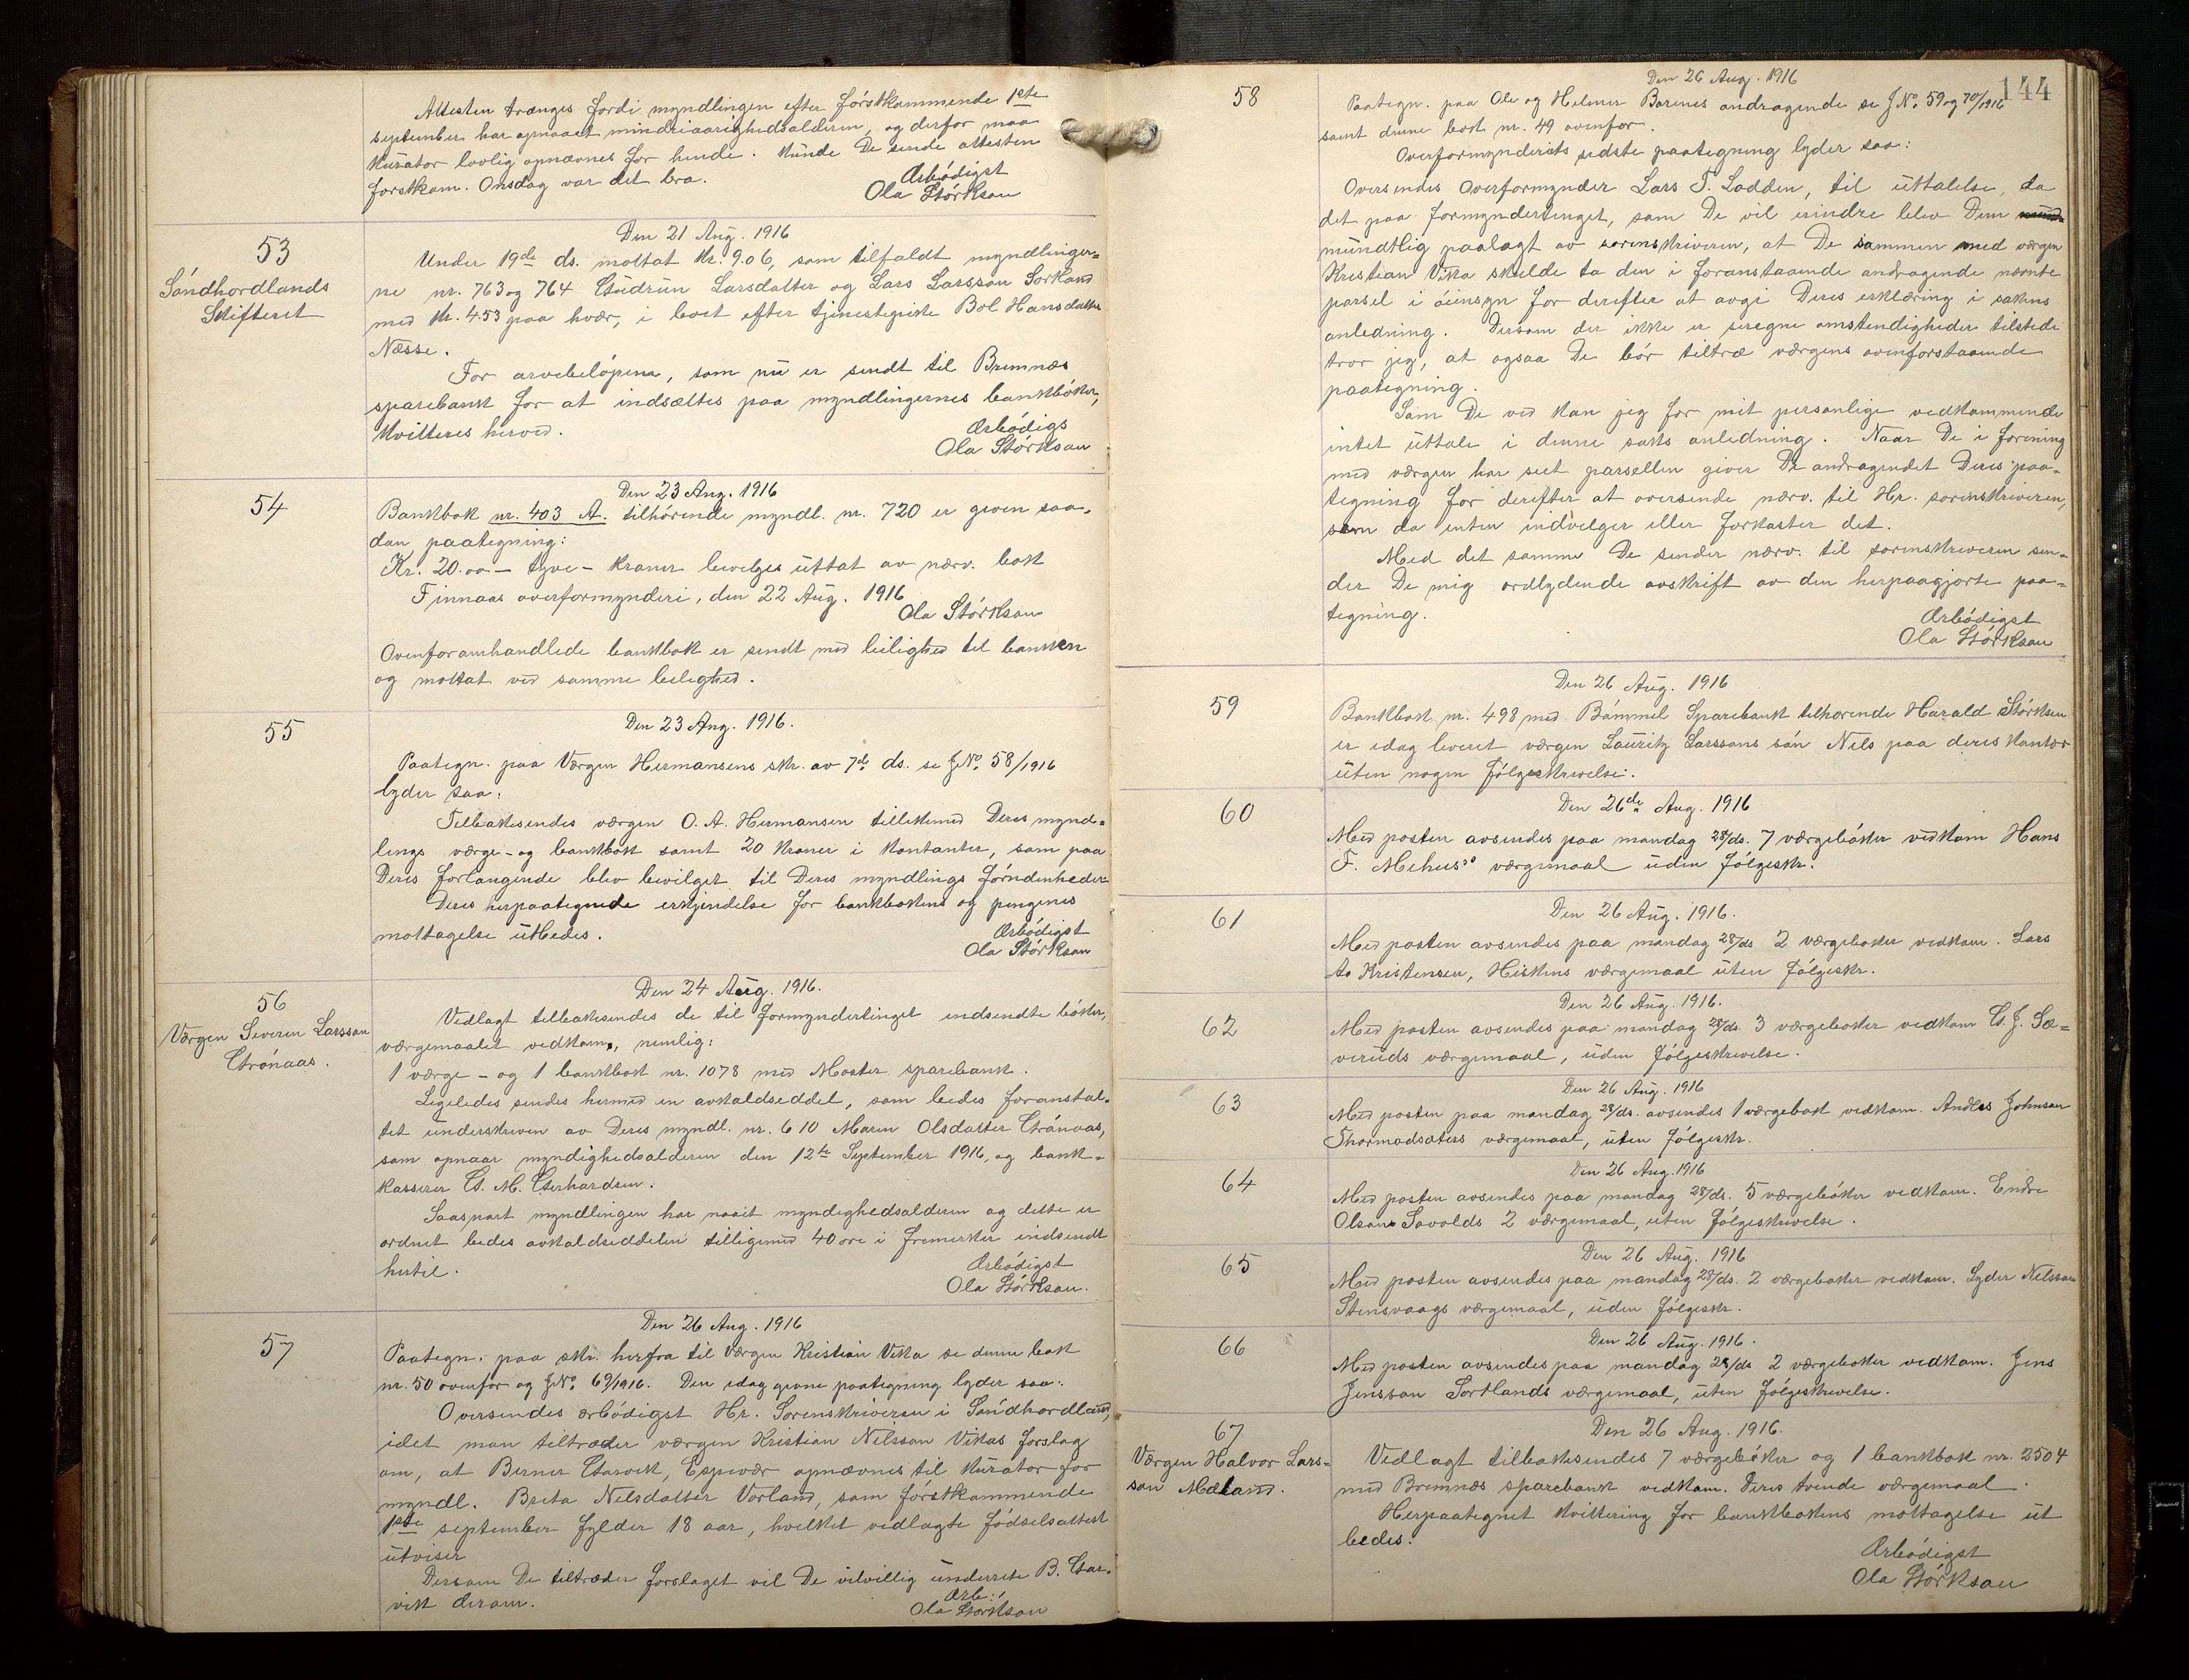 Attesten trænges fordi myndlingen efter förstkommende 1ste
september har opnaaet mindreaarighedsalderen, og derfor maa
kurator lovlig opnævnes for hende. Kunde De sende attesten
forstkom. Onsdag var det bra.
Ærbödigst
Ola Störkson
53
Söndhordlands
Skifteret
Den 21 Aug. 1916
Under 19de ds. mottat kr. 9.06, som tilfaldt myndlinger-
ne nr. 763 og 764 Gudrun Larsdatter og Lars Larsson Sorkland
med kr. 4.53 paa hvær, i boet efter tjenestepike Bol Hansdatter
Næsse.
For arvebelöpene, som nu er sendt til Bremnæs
sparebank for at indsættes paa myndlingernes bankböker,
kvitteres herved.
Ærbödigs
Ola Störkson
54
Den 23 Aug. 1916
Bankbok nr. 403 A. tilhörende myndl. nr. 720 er given saa-
dan paategning:
Kr. 20.00 - tyve - kroner bevilges uttat av nærv. bok
Finnaas overformynderi, den 22 Aug. 1916
Ola Störkson
Ovenforomhandlede bankbok er sendt med leilighed til banken
og mottat ved samme leilighed.
55
Den 23 Aug. 1916.
Paategn. paa Værgen Hermansens skr. av 7de ds. se JNo. 58/1916
lyder saa:
Tilbakesendes værgen O. A. Hermansen tillikemed Deres mynd-
lings værge- og bankbok samt 20 kroner i kontanter, som paa
Deres forlangende blev bevilget til Deres myndlings fornödenheder
Deres herpaategnede erkjendelse for bankbokens og pengenes
mottagelse utbedes.
Ærbödigst
Ola Störkson
56
Værgen Severin Larsson
Grönaas.
Den 24 Aug. 1916.
Vedlagt tilbakesendes de til formyndertinget indsendte böker,
værgemaalet vedkom., nemlig:
1 værge - og 1 bankbok nr. 1078 med Moster sparebank.
Legeledes sendes hermed en avkaldseddel, som bedes foranstal-
tet underskreven av Deres myndl. nr. 610 Maren Olsdatter Grönaas,
som opnaar myndighedsalderen den 12te September 1916, og bank-
kasserer G. M. Gerhardsen.
Saasnart myndlingen har naait myndighedsalderen og dette er
ordnet bedes avkaldseddelen tilligemed 40 öre i frimerker indsendt
hertil.
Ærbödigst
Ola Störkson.
57
Den 26 Aug. 1916
Paategn. paa skr. herfra til værgen Kristian Vika se denne bok
nr. 50 ovenfor og JNo. 69/1916. Den idag givne paategning lyder saa:
Oversendes ærbödigst Hr. Sorenskriveren i Söndhordland,
idet man tiltræder værgen Kristian Nelsson Vikas forslag
om, at Berner Garvik, Espevær opnævnes til kurator for
myndl. Brita Nelsdatter Vorland, som förstkommende
1ste september fylder 18 aar, hvilket vedlagte födselsattest
utviser
Dersom De tiltræder forslaget vil De velvillig underrete B. Gar-
vik derom.
Ærb:
Ola Störkson
144
58
Den 26 Aug. 1916
Paategn. paa Ole og Helmer Barenes andragende se JNo. 59 og 70/1916
samt denne bok nr. 49 ovenfor.
Overformynderiets sidste paategning lyder saa:
Oversendes Overformynder Lars T. Lodden, til uttalelse, da
det paa formyndertinget, som De vil erindre blev Dem
mundtlig paalagt av sorenskriveren, at De sammen med værgen
Kristian Vika skulde ta den i foranstaaende andragende nævnte
parsel i öiensyn for derefter at avgi Deres erklæring i sakens
anledning. Dersom der ikke er seregne omstendigheder tilstede
tror jeg, at ogsaa De bör tiltræ værgens ovenforstaaende
paategning.
Som De ved kan jeg for mit personlige vedkommende
intet uttale i denne saks anledning. Naar De i forening
med værgen har seet parsellen giver De andragendet Deres paa-
tegning for derefter at oversende nærv. til Hr. sorenskriveren,
som da enten indvelger eller forkaster det.
Med det samme De sender nærv. til sorenskriveren sen-
der De mig ordlydende avskrift av den herpaagjorte paa-
tegning.
Ærbödigst
Ola Störkson
59
Den 26 Aug. 1916
Bankbok nr. 498 med Bömmel Sparebank tilhorende Harald Störksen
er idag leveret værgen Lauritz Larssons sön Nels paa deres kontor
uten nogen fölgeskrivelse.
60
Den 26de Aug. 1916
Med posten avsendes paa mandag 28/ds. 7 værgeböker vedkom Hans
F. Mehus's værgemaal uden fölgeskr.
61
Den 26 Aug. 1916.
Med posten avsendes paa mandag 28/ds 2 værgeboker vedkom. Lars
As Kristensen, Hiskens værgemaal uten fölgeskr.
62
Den 26 Aug. 1916.
Med posten avsendes paa mandag 28/ds. 3 værgeboker vedkom G. J. Sæ-
veruds værgemaal, uden fölgeskrivelse.
63
Den 26 Aug. 1916
Med posten paa mandag 28/ds. avsendes 1 værgebok vedkom. Anders Johnson
Thormodsæters værgemaal, uten fölgeskr.
64
Den 26 Aug. 1916
Med posten avsendes paa mandag 28/ds. 5 værgeböker vedkom. Endre
Olsons Søvolds 2 værgemaal, uten fölgeskrivelse.
65
Den 26 Aug. 1916
Med posten avsendes paa mandag 28/ds. 2 værgeboker vedkom. Lyder Nelsson
Stensvaags værgemaal, uden fölgeskr.
66
Den 26 Aug. 1916.
Med posten avsendes paa mandag 28/ds 2 værgeboker vedkom. Jens
Jensson Sortlands værgemaal, uten fölgeskrivelse.
67
Værgen Halvor Lars-
son Mæland.
Den 26 Aug. 1916.
Vedlagt tilbakesendes 7 værgeböker og 1 bankbok nr. 2504
med Bremnæs sparebank vedkom. Deres tvende værgemaal.
Herpaategnet kvittering for bankbokens mottagelse ut
bedes.
Ærbödigst
Ola Störkson